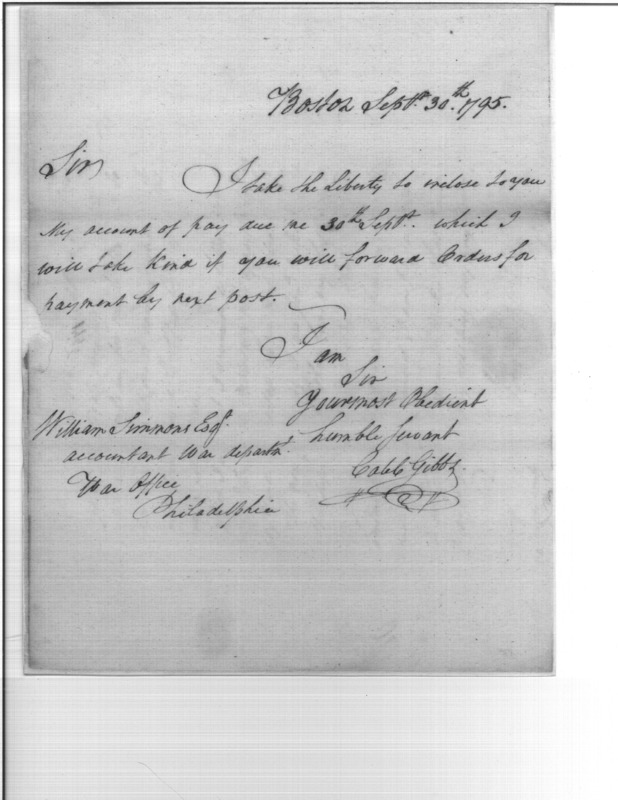 Boston Septr. 30.th 1795.
Sir
I take the Liberty to inclose to you
My account of pay due me 30th Septr. which I
will take kind if you will forward Orders for
payment by next post.
I am
Sir
Your most Obedient
humble servant
Caleb Gibbs.
William Simmons Esqr.
accountant war departmt.
War Office
Philadelphia